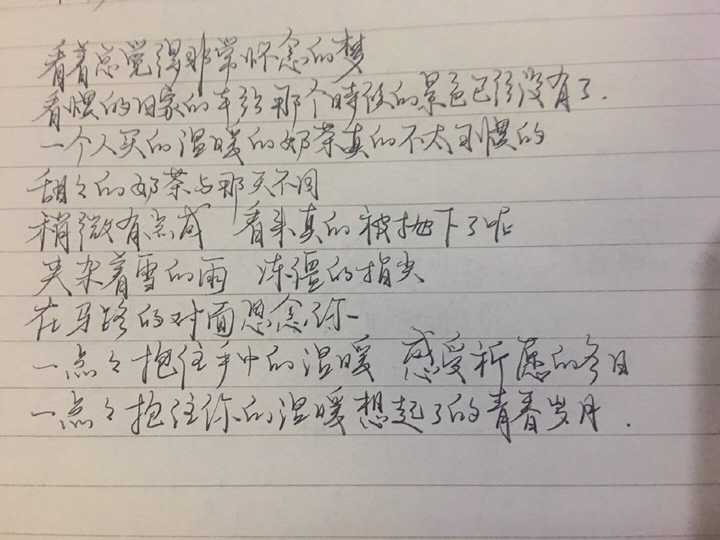 看着总觉得非常怀念的梦
看惯的回家的车站那个时候的景色已经没有了.
一个人买的温暖的奶茶真的不太习惯的
甜々的奶茶与那天不同
稍微有点咸 看来真的被抛下了呢
夹杂着雪的雨 冻僵的指尖
在马路的对面思念你
一点々抱住手中的温暖 感受祈愿的今日
一点々抱住你的温暖想起了的青春岁月.